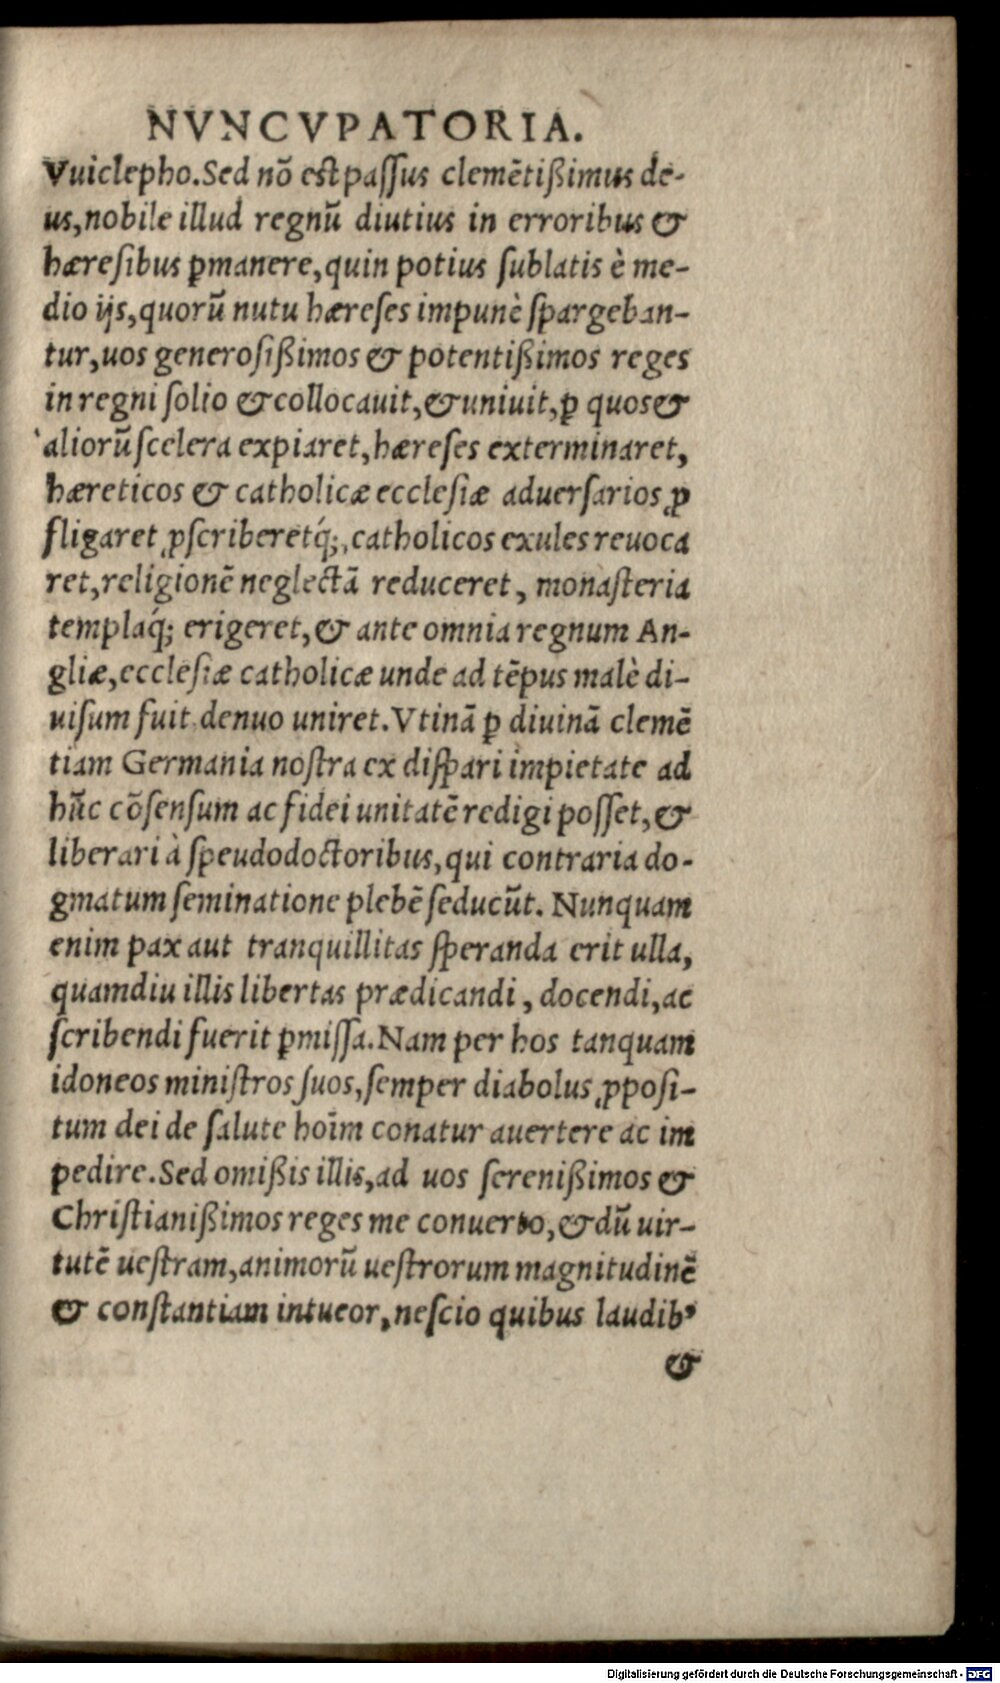 NVNCVPATORIA.
Vuiclepho. Sed nō est passus clemētißimus de-
us, nobile illud regnū diutius in erroribus &
hæresibus ꝑmanere, quin potius sublatis è me-
dio ijs, quorū nutu hæreses impunè spargeban-
tur, uos generosißimos & potentißimos reges
in regni solio & collocauit, & uniuit, ꝑ quos &
aliorū scelera expiaret, hæreses exterminaret,
hæreticos & catholicæ ecclesiæ aduersarios ꝓ
fligaret ꝓscriberetq́;, catholicos exules reuoca
ret, religionē neglectā reduceret, monasteria
templaq́; erigeret, & ante omnia regnum An-
gliæ, ecclesiæ catholicæ unde ad tēpus malè di-
uisum fuit denuo uniret. Vtinā ꝑ diuinā clemē
tiam Germania nostra ex dispari impietate ad
hūc cōsensum ac fidei unitatē redigi posset, &
liberari à speudodoctoribus, qui contraria do-
gmatum seminatione plebē seducūt. Nunquam
enim pax aut tranquillitas speranda erit ulla,
quamdiu illis libertas prædicandi, docendi, ac
scribendi fuerit ꝑmissa. Nam per hos tanquam
idoneos ministros suos, semper diabolus ꝓposi-
tum dei de salute hoīm conatur auertere ac im
pedire. Sed omißis illis, ad uos serenißimos &
Christianißimos reges me conuerto, & dū uir-
tutē uestram, animorū uestrorum magnitudinē
& constantiam intueor, nescio quibus laudibꝰ
&
Digitalisierung gefördert durch die Deutsche Forschungsgemeinschaft - DFG